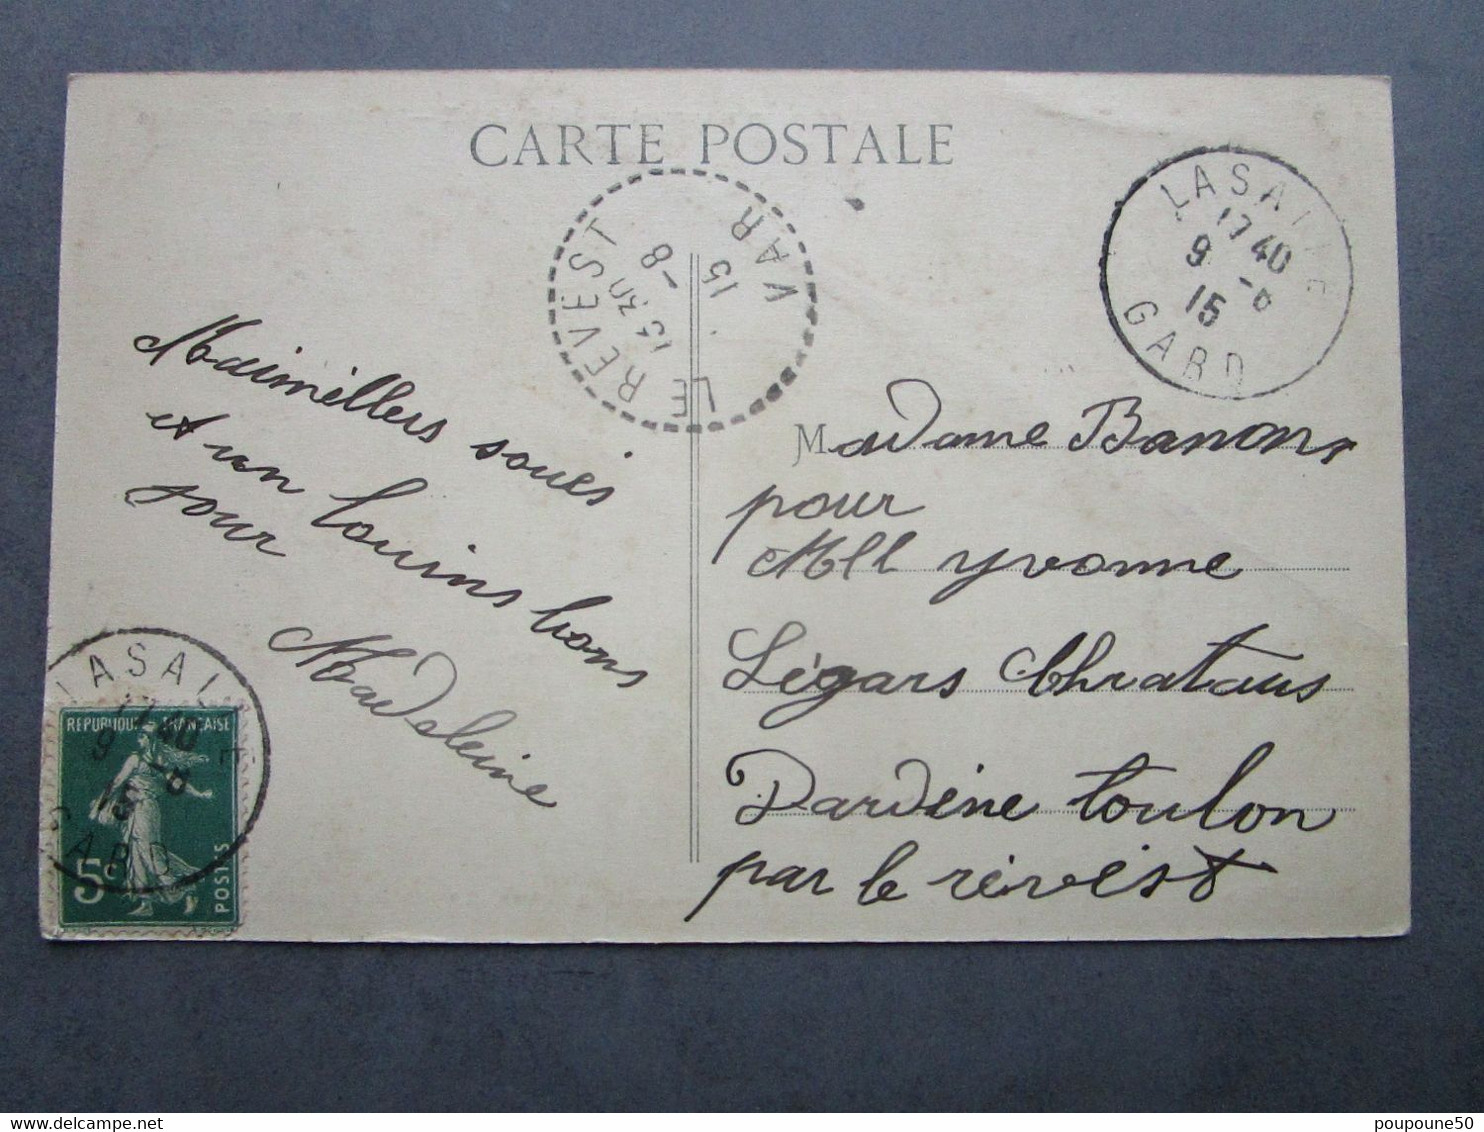 CARTE POSTALE
LASALLE
17 40
9 -8
15
GARD
LE REVEST
13 30
-8
15
VAR
Maimellers soués
et un louins bons
jour
Madeleine
Madame Banons
pour
Mll yvonne
Légars Chrataus
Dardène toulon
par le révést
LASALLE
17 40
9 -8
15
GARD
REPUBLIQUE FRANÇAISE
5c
POSTES
poupoune50